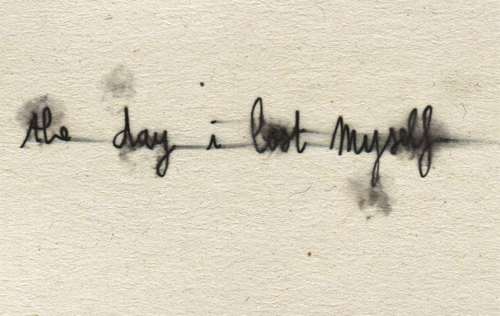 the day i lost myself